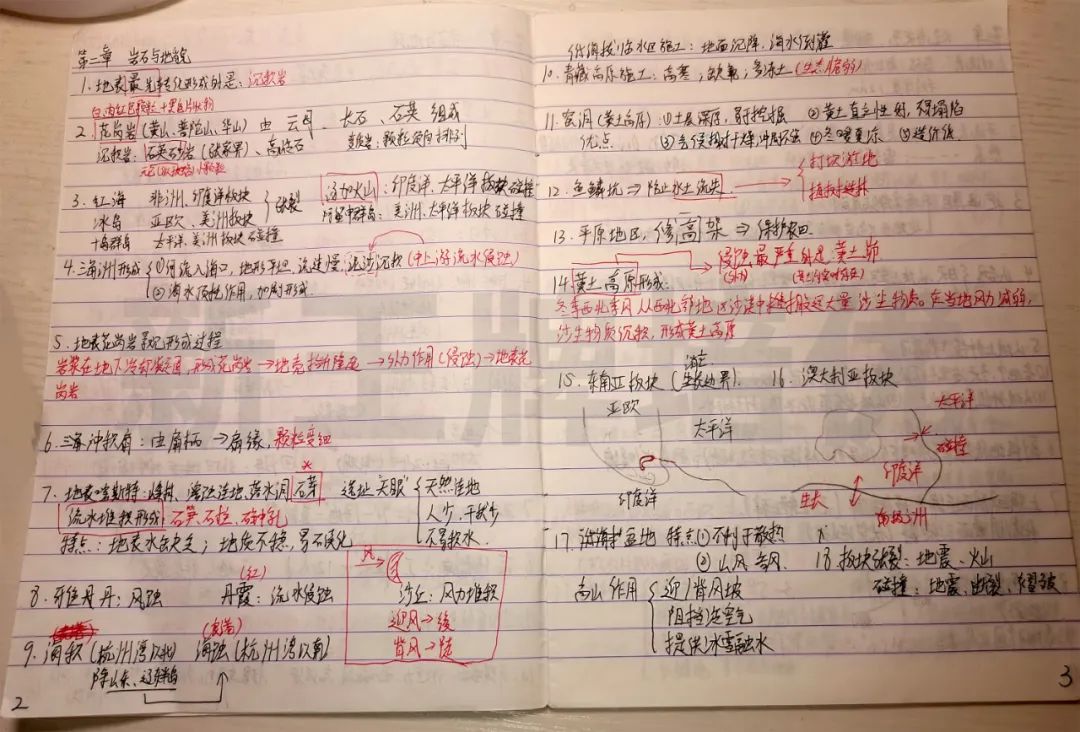 第二章 岩石与地貌
1. 地表最先转化形成的是: 沉积岩
2. 花岗岩(黄山、普陀山、华山) 由 云母、长石、石英 组成
沉积岩: 石英砂岩(张家界)、
变质岩: 颗粒定向排列
3. 红海 非洲、印度洋板块
冰岛 亚欧、美洲板块
张裂
千岛群岛 太平洋、美洲板块碰撞
汤加火山: 印度洋、太平洋板块碰撞
阿留申群岛: 美洲、太平洋板块碰撞
4. 三角洲形成 ①河流入海口, 地形平坦, 流速慢, 泥沙沉积 (中上游流水侵蚀)
②海水顶托作用, 加剧形成.
5. 地表花岗岩景观形成过程
岩浆在地下冷却凝固, 形成花岗岩→地壳抬升隆起→外力作用(侵蚀)→地表花
岗岩
6. 冲积扇: 由扇柄→扇缘, 颗粒变细
7. 地表喀斯特: 峰林、溶蚀洼地、落水洞 石芽
流水堆积形成: 石笋、石柱、石钟乳
特点: 地表水缺乏; 地质不稳, 易石漠化
选址"天眼" 天然洼地
人少, 干扰少
不易积水.
(红)
8. 风蚀 丹霞: 流水侵蚀
风→
沙丘: 风力堆积
迎风→缓
背风→陡
9. 海积(杭州湾以北) 海蚀(杭州湾以南)
除山东、辽东半岛
2
低海拔临水区施工: 地面沉降, 海水倒灌
10. 青藏高原施工: 高寒; 缺氧; 多冻土 (生态脆弱)
11. 窑洞(黄土高原): ①土层深厚, 易于挖掘 ②黄土直立性好, 不易塌陷
优点 ③ ④冬暖夏凉 ⑤造价低
12. 鱼鳞坑⇒防止水土流失
打坝淤地
植树造林
13. 平原地区, 修高架⇒保护农田.
14. 黄土高原形成:
侵蚀最严重的是: 黄土峁
冬季西北季风从西北邻地区沙漠中挟带搬运大量沙尘物质。在当地风力减弱,
沙尘物质沉积, 形成黄土高原
消亡
15. 东南亚板块 (生长边界).
亚欧
太平洋
印度洋
16. 澳大利亚板块
太平洋
碰撞
印度洋
生长
南极洲
17. 盆地 特点① 不利于散热
高山作用 迎/背风坡
阻挡冷空气
提供冰雪融水
18 板块张裂: 地震、火山
碰撞: 地震、断裂、褶皱
3